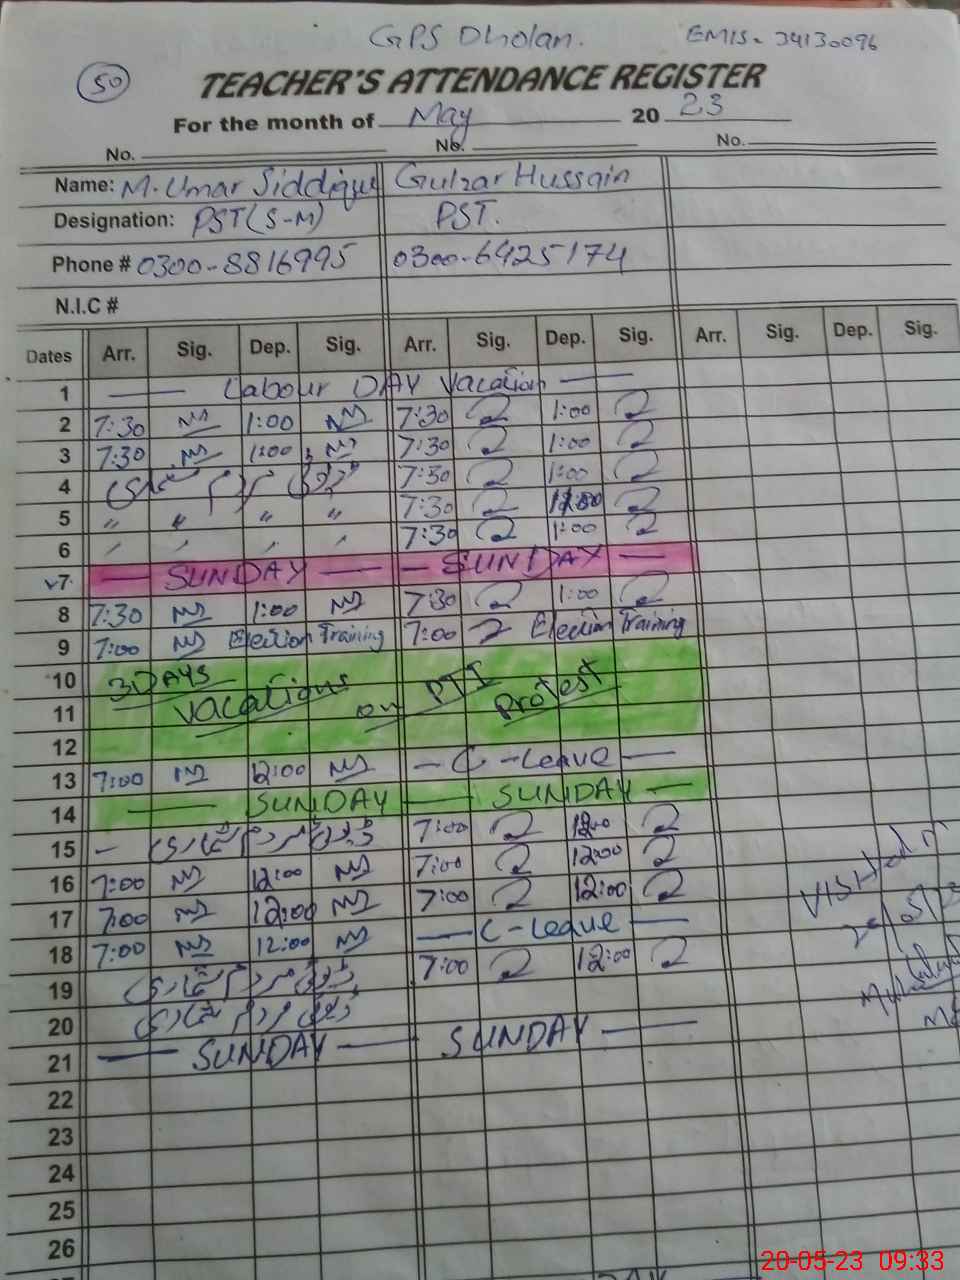 GPS Dholan. EMIS- 34130096
50
TEACHER'S ATTENDANCE REGISTER
For the month of May 20 23
No. No. No.
Name: M. Umar Siddique Gulzar Hussain
Designation: PST(S-M) PST.
Phone # 0300-8816995 0300-6425174
N.I.C #
Dates Arr. Sig. Dep. Sig. Arr. Sig. Dep. Sig. Arr. Sig. Dep. Sig.
1 — Labour DAY Vacation —
2 7:30 1:00 7:30 1:00
3 7:30 1:00 7:30 1:00
4 7:30 1:00
5 " " " " 7:30
6 7:30 1:00
7 — SUNDAY — — SUNDAY —
8 7:30 1:00 7:30 1:00
9 7:00 Election Training 7:00 Election Training
10 3 DAYS
11 Vacations on PTI Protest
12
13 7:00 12:00 — C-Leave —
14 — SUNDAY — SUNDAY —
15 — 7:00 12:00
16 7:00 12:00 7:00 12:00
17 7:00 12:00 7:00 12:00
18 7:00 12:00 — C-Leave —
19 7:00 12:00
20
21 — SUNDAY — SUNDAY —
22
23
24
25
26
Visited
20-05-23 09:33